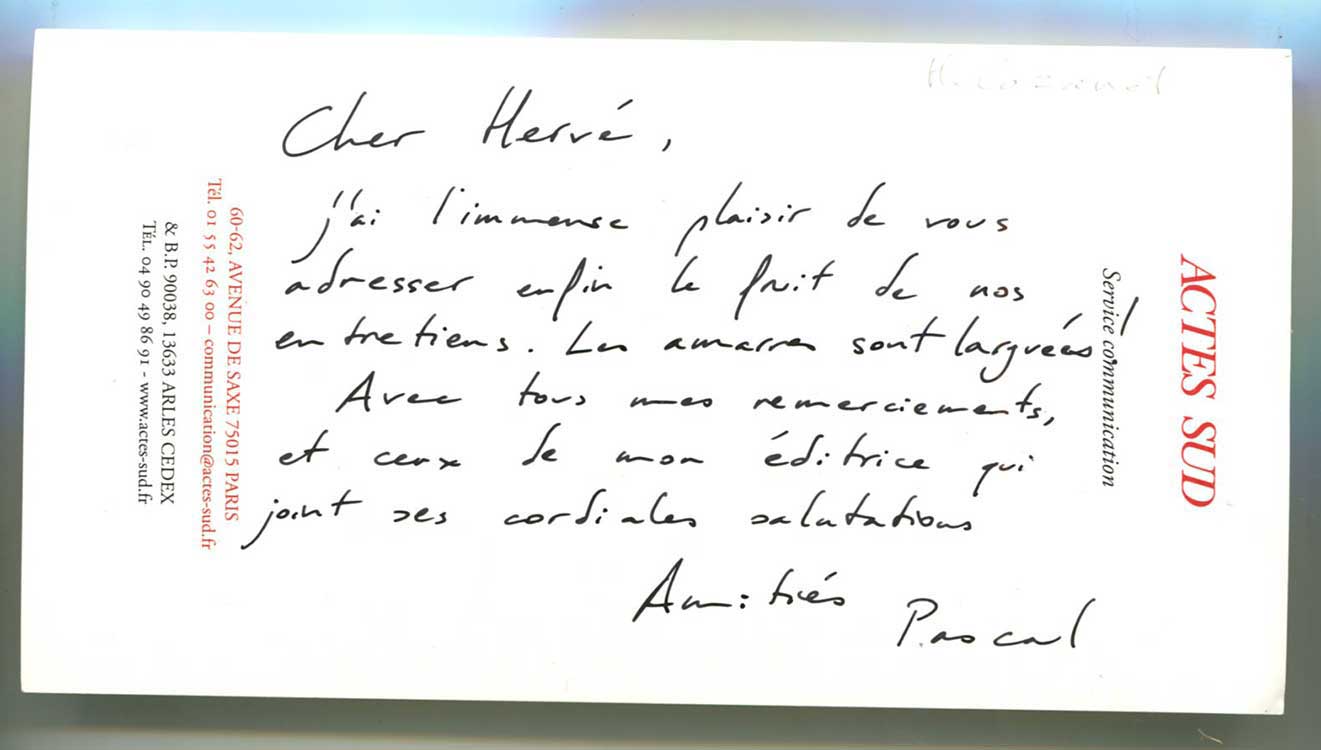 Cher Hervé,
j'ai l'immense plaisir de vous
adresser enfin le fruit de nos
entretiens. Les amarres sont larguées!
Avec tous mes remerciements,
et ceux de mon éditrice qui
joint ses cordiales salutations
Amitiés
Pascal
ACTES SUD
Service communication
60-62, AVENUE DE SAXE 75015 PARIS
Tél. 01 55 42 63 00 – communication@actes-sud.fr
& B.P. 90038, 13633 ARLES CEDEX
TÉL. 04 90 49 86 91 - www.actes-sud.fr